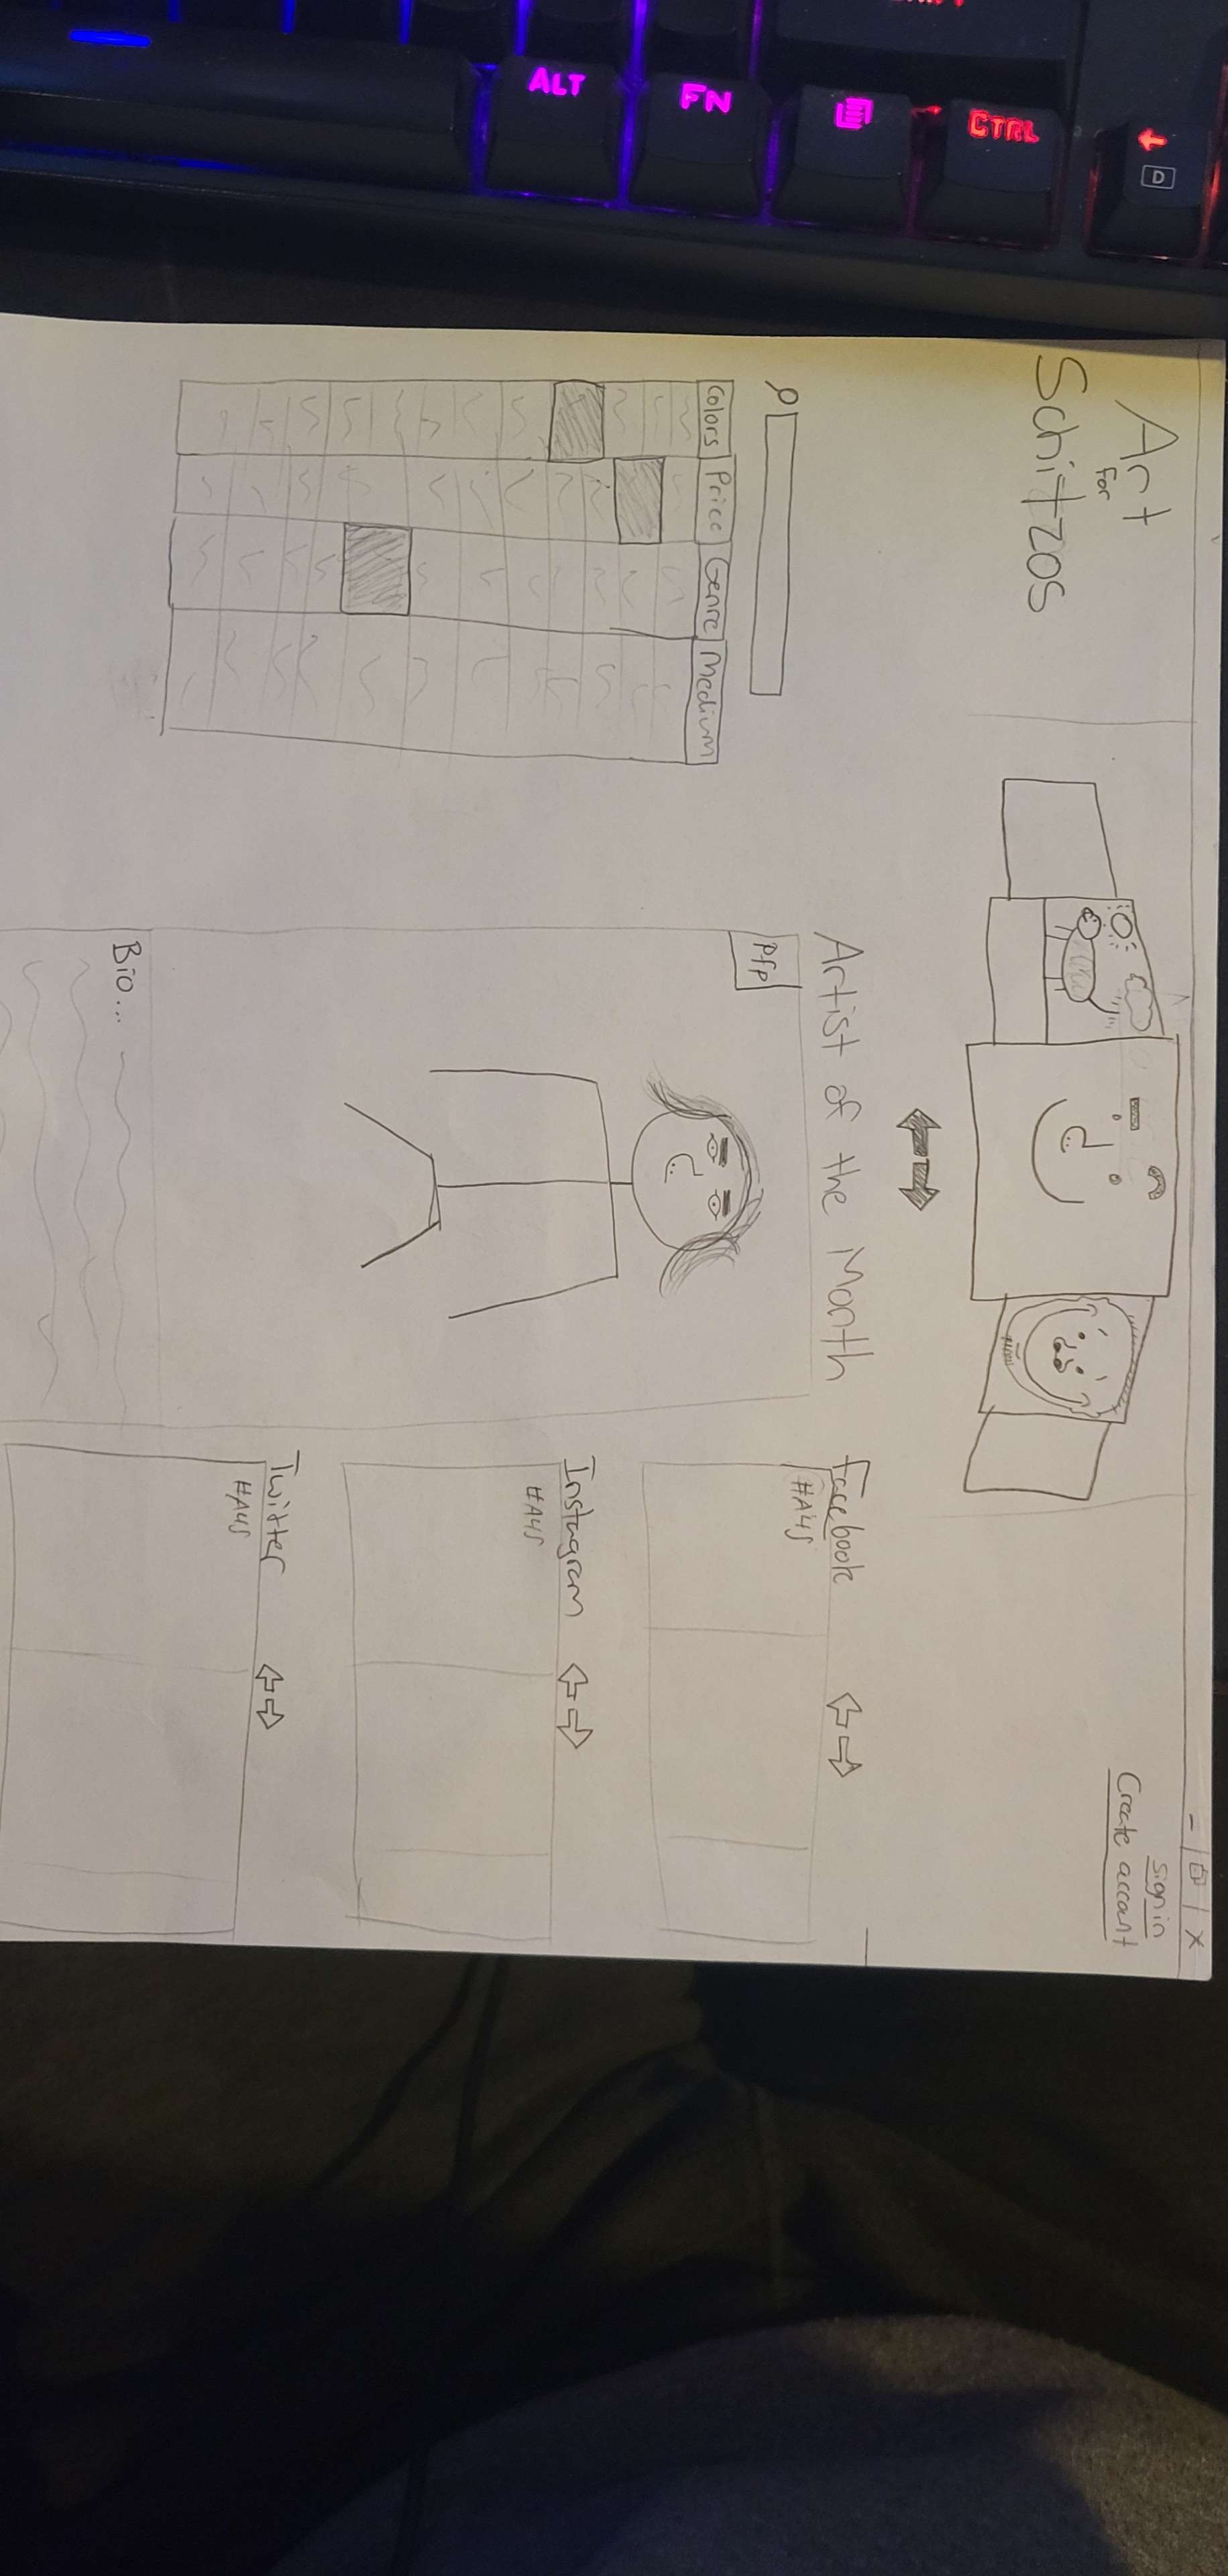 Art
For
Schitzos
- X
sign in
Create account
Colors Price Genre Medium
Artist of the Month
Pfp
Bio...
Facebook
#A4S
Instagram
#A4S
Twitter
#A4S
ALT FN CTRL
D